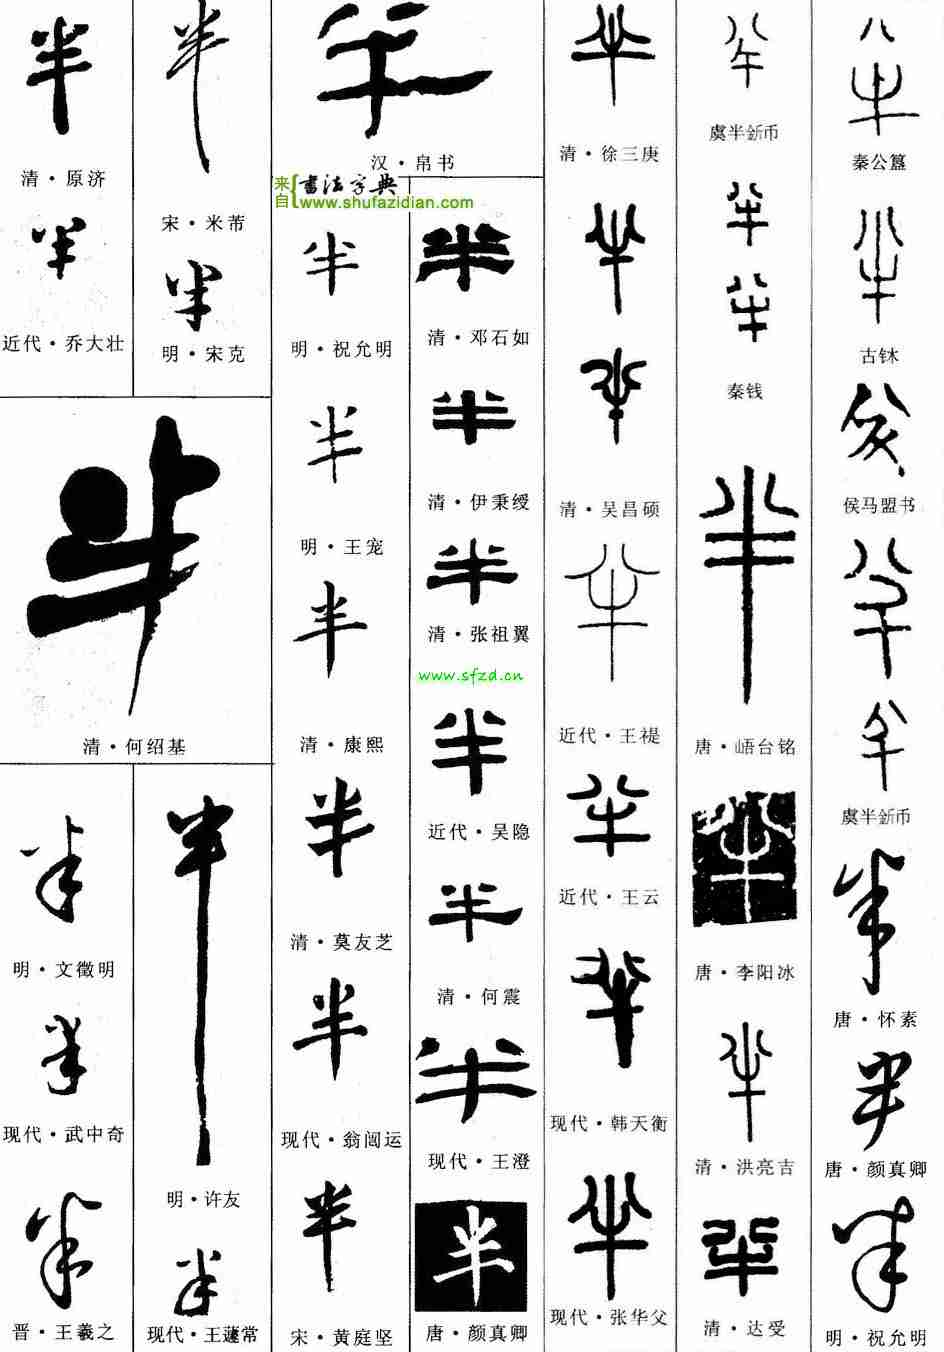 半
清・徐三庚
半
清・原济
半
宋・米芾
半
汉・帛书
半
虞半釿币
半
秦公簋
来自
书法字典
www.shufazidian.com
半
近代・乔大壮
半
明・宋克
半
明・祝允明
半
清・邓石如
半
清・吴昌硕
半
秦钱
半
古钵
半
清・何绍基
半
明・王宠
半
清・伊秉绶
半
近代・王禔
半
唐・峿台铭
侯马盟书
半
清・康熙
半
清・张祖翼
www.sfzd.cn
半
近代・吴隐
半
近代・王云
半
唐・李阳冰
半
虞半釿币
半
明・文徵明
半
明・许友
半
清・莫友芝
半
清・何震
半
现代・韩天衡
半
清・洪亮吉
半
唐・怀素
半
现代・武中奇
半
现代・翁闿运
半
现代・王澄
半
唐・颜真卿
半
晋・王羲之
半
现代・王蘧常
半
宋・黄庭坚
半
唐・颜真卿
半
现代・张华父
半
清・达受
半
明・祝允明